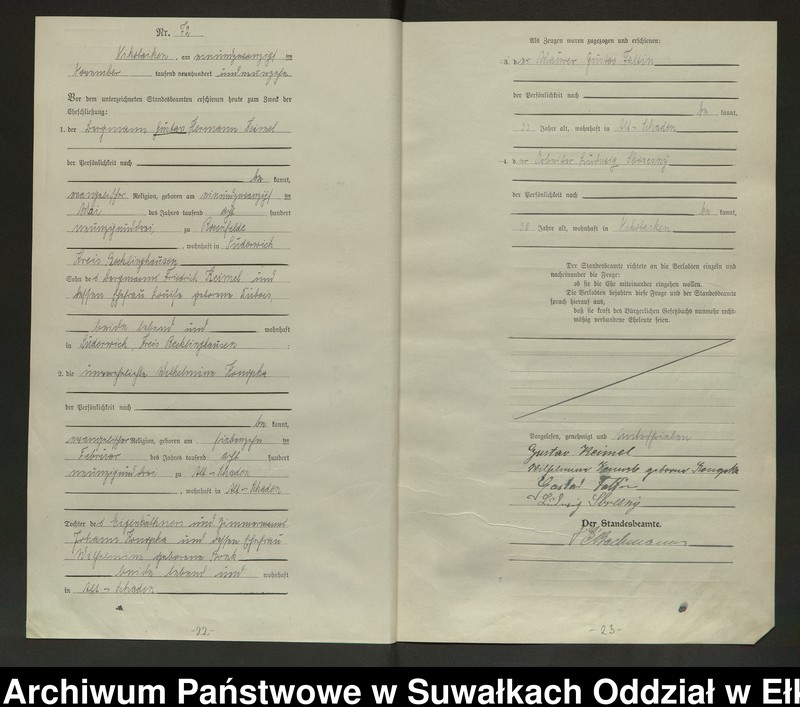 Nr. 72
Nikolaiken, am neunundzwanzigsten
November tausend neunhundert
Vor dem unterzeichneten Standesbeamten erschienen heute zum Zweck der
Eheschließung:
1. der Bergmann Gustav Hermann
der Persönlichkeit nach
be kannt,
evangelischer Religion, geboren am
Mai des Jahres tausend acht hundert
neunzig und drei, zu Rosenfelde
, wohnhaft in Suderwich
Kreis Recklinghausen
Sohn des Bergmanns Friedrich und
dessen Ehefrau Louise geborene
beide lebend und wohnhaft
in Suderwich, Kreis Recklinghausen
2. die unverehelichte Wilhelmine Konopka
der Persönlichkeit nach
be kannt,
evangelischer Religion, geboren am siebenzehn
Februar des Jahres tausend acht hundert
neunzig und drei zu Alt-Schaden
, wohnhaft in Alt-Schaden
Tochter des Eigenkätners und Zimmermanns
Johann Konopka und dessen Ehefrau
Wilhelmine geborene
beide lebend und wohnhaft
in Alt-Schaden
-22-
Als Zeugen waren zugezogen und erschienen:
3. der Maurer Gustav
der Persönlichkeit nach
be kannt,
Jahre alt, wohnhaft in Alt-Schaden
4. der Arbeiter Ludwig
der Persönlichkeit nach
be kannt,
38 Jahre alt, wohnhaft in Nikolaiken
Der Standesbeamte richtete an die Verlobten einzeln und
nacheinander die Frage:
ob sie die Ehe miteinander eingehen wollen.
Die Verlobten bejahten diese Frage und der Standesbeamte
sprach hierauf aus,
daß sie kraft des Bürgerlichen Gesetzbuchs nunmehr recht-
mäßig verbundene Eheleute seien.
Vorgelesen, genehmigt und unterschrieben
Gustav
Wilhelmine geborene Konopka
Gustav
Ludwig
Der Standesbeamte.
-23-
Archiwum Państwowe w Suwałkach Oddział w Ełk